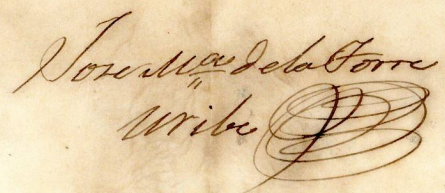 Jose Ma de la Torre
Uribe